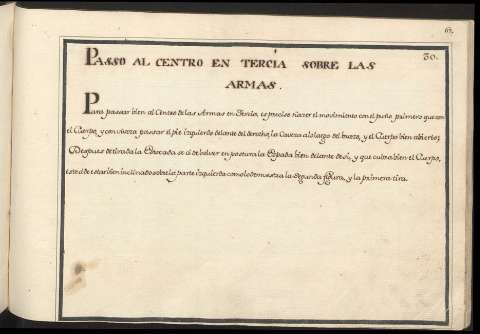 63.
30.
PASSO AL CENTRO EN TERCIA SOBRE LAS
ARMAS.
Para passar bien al Centro de las Armas en Tercia, es preciso hacer el movimiento con el puño, primero que con
el Cuerpo, y con viveza passar el pie izquierdo delante del derecho, la Caveza a lo largo del brazo, y el Cuerpo bien abierto;
Despues de tirada la Estocada se á de bolver en postura la Espada bien delante de sí, y que cubra bien el Cuerpo,
este á de estar bien inclinado sobre la parte izquierda como lo demuestra la segunda figura, y la primera tira.